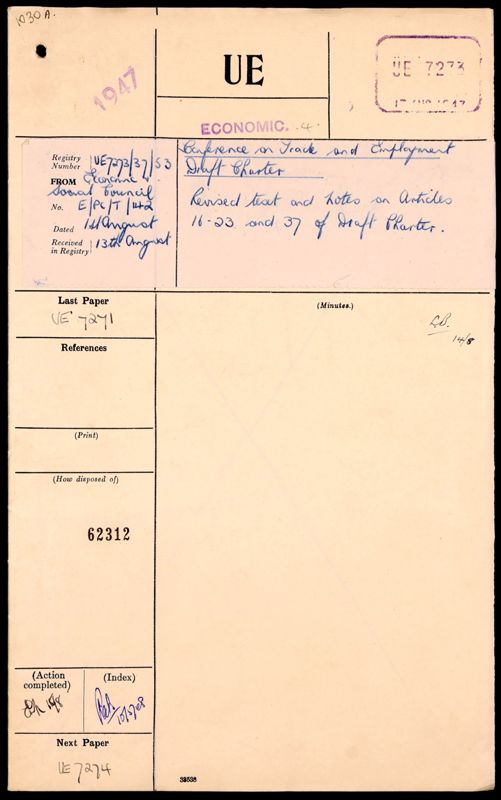 1030A.
1947
UE
ECONOMIC. 4.
UE 7273
Registry Number UE7273/37/53
FROM Economic &
Social Council
No. E/PC/T/142
Dated 1st August
Received in Registry 13th August
Conference on Trade and Employment
Draft Charter
Revised text and notes on Articles
16-23 and 37 of Draft Charter.
Last Paper
UE 7271
References
(Print)
(How disposed of)
62312
(Minutes.)
14/8
(Action completed)
(Index)
Next Paper
UE 7274
33538